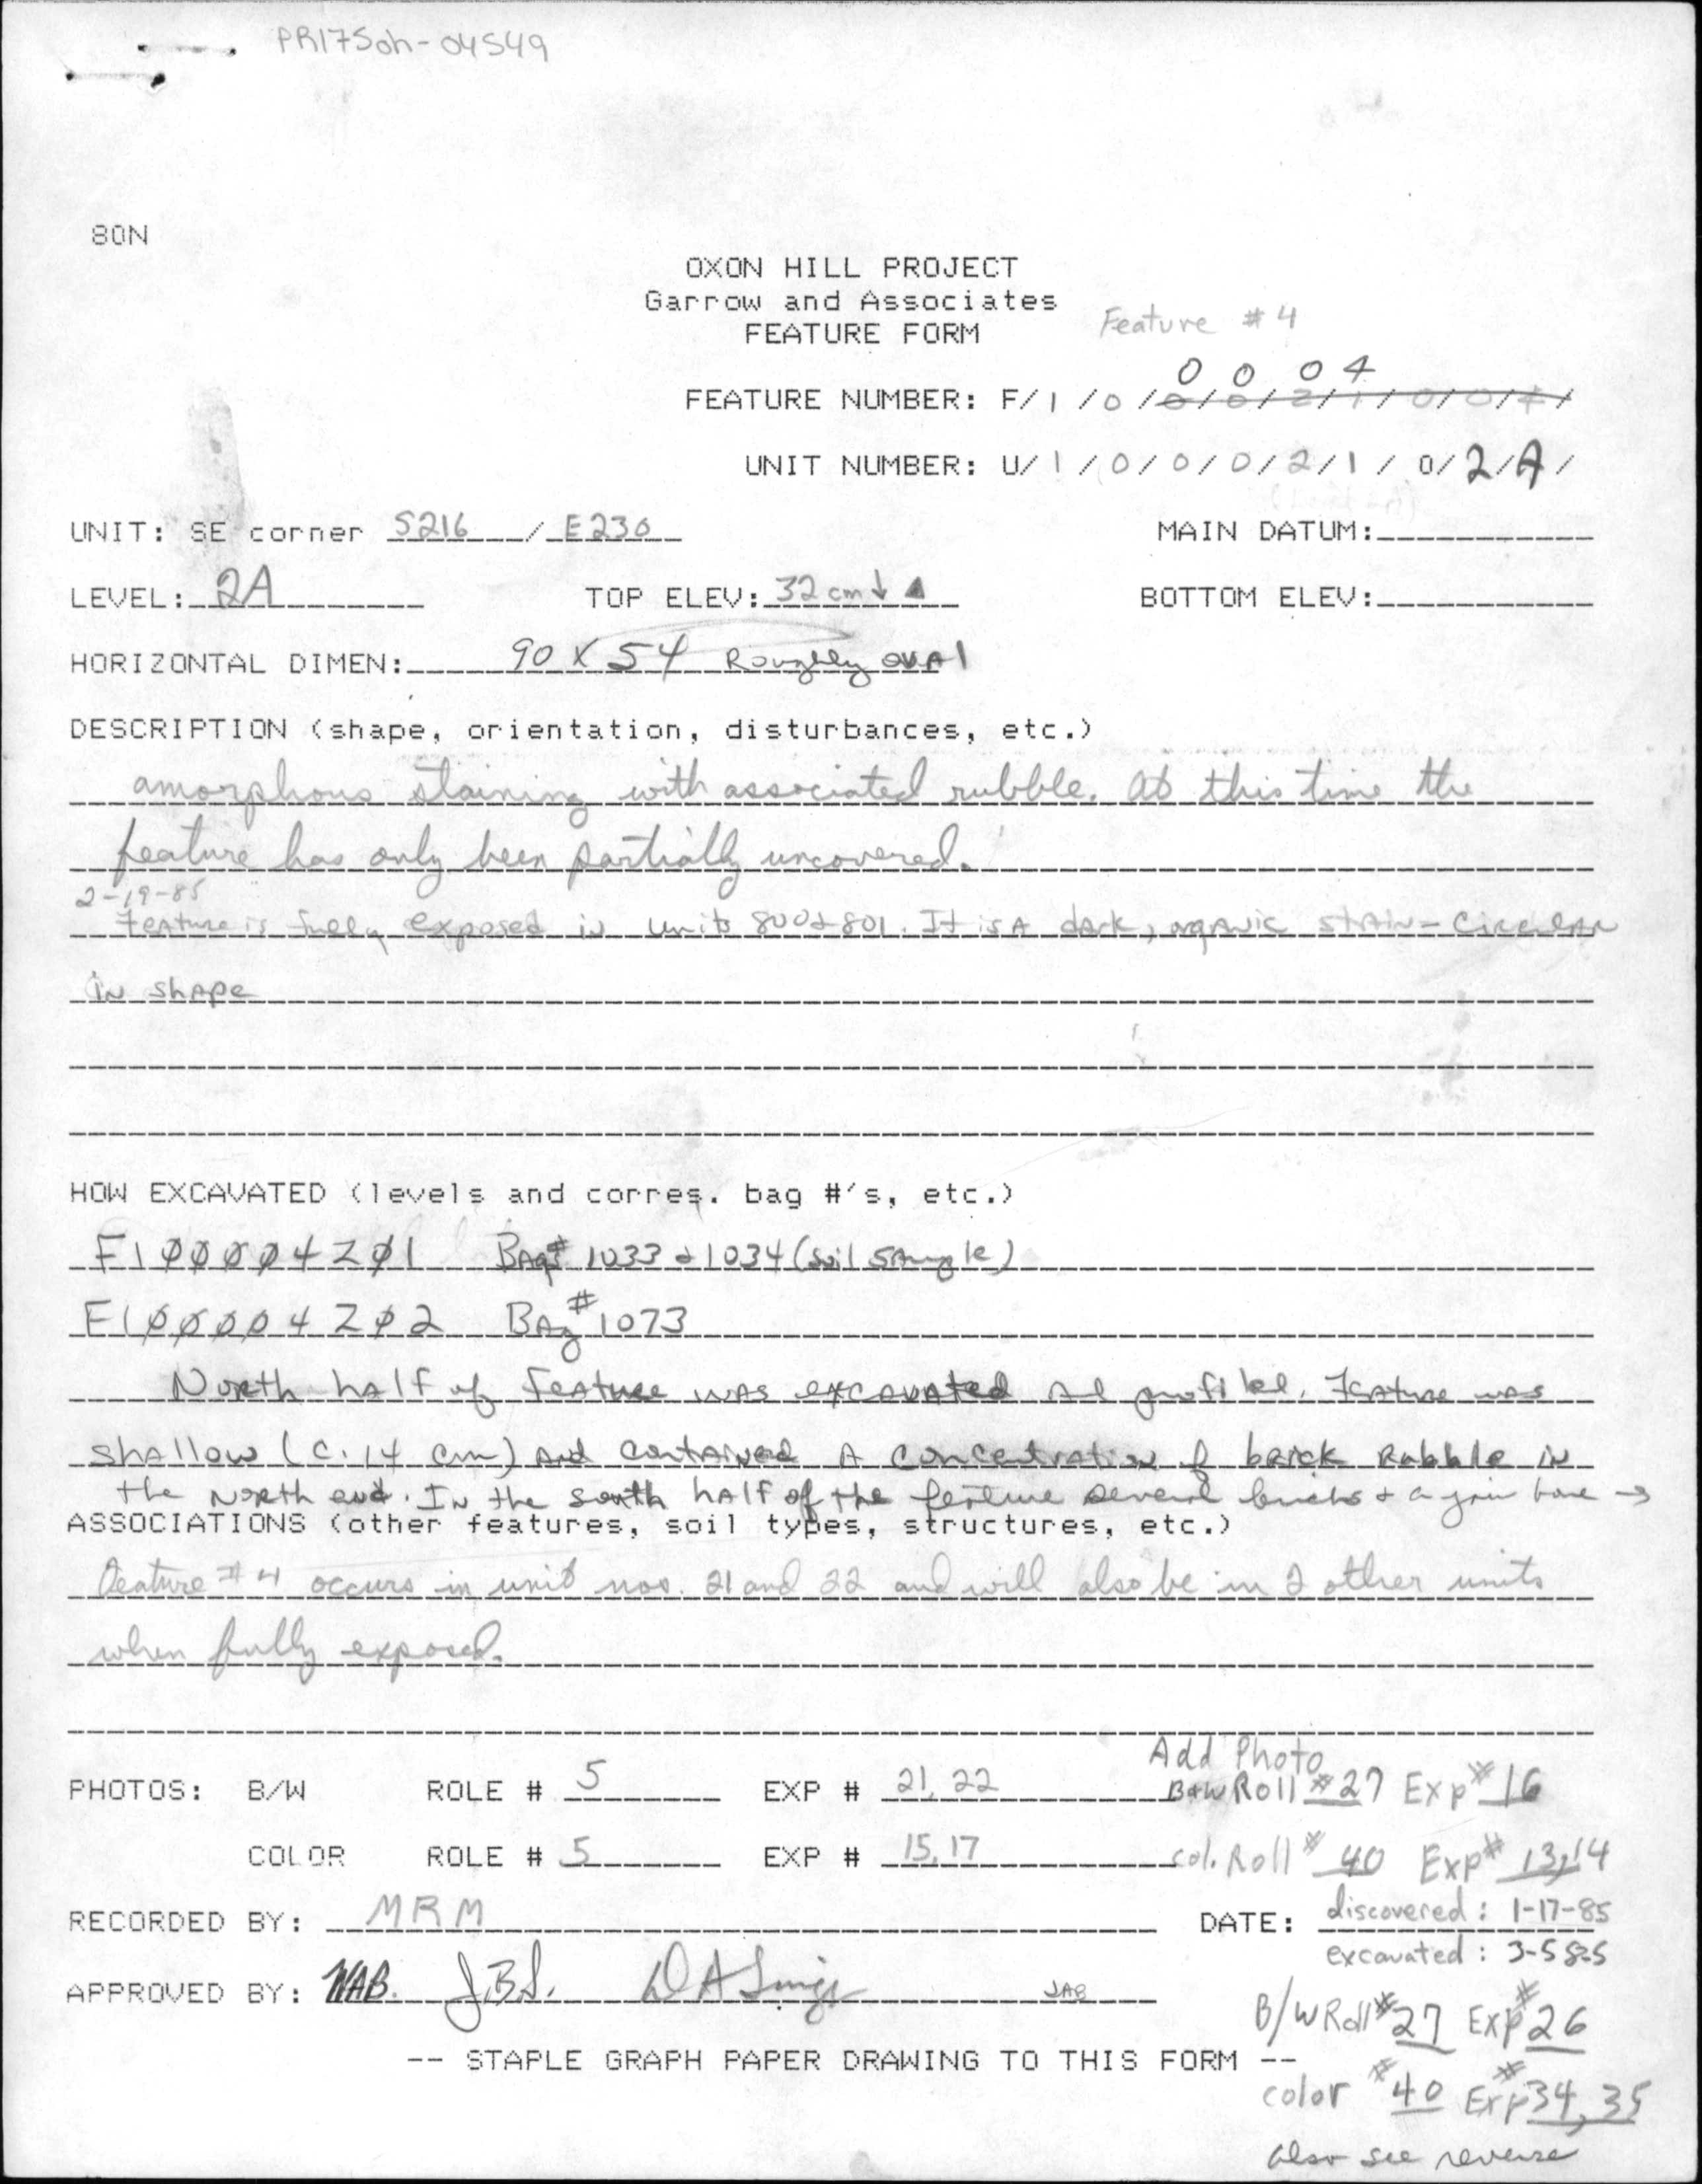 PR175oh-04549
80N
OXON HILL PROJECT
Garrow and Associates
FEATURE FORM
Feature #4
0 0 0 4
FEATURE NUMBER: F/1/0/0/0/2/1/0/0/4/
UNIT NUMBER: U/1/0/0/0/2/1/0/2/A/
UNIT: SE corner S216 / E230 MAIN DATUM:
LEVEL: 2A TOP ELEV: 32 cm ↓ ▲ BOTTOM ELEV:
HORIZONTAL DIMEN: 90 X 54 Roughly oval
DESCRIPTION (shape, orientation, disturbances, etc.)
amorphous staining with associated rubble. At this time the
feature has only been partially uncovered.
2-19-85
Feature is fully exposed in units 800 & 801. It is A dark, organic stain - Circular
in shape
HOW EXCAVATED (levels and corres. bag #'s, etc.)
F1ØØØØ4ZØ1 Bags# 1033 & 1034 (soil sample)
F1ØØØØ4ZØ2 Bag #1073
North half of Feature was excavated ad profiled. Feature was
shallow (c. 14 cm) and contained A concentration of brick Rubble in
the North end. In the south half of the feature several bricks & a jaw bone →
ASSOCIATIONS (other features, soil types, structures, etc.)
Feature #4 occurs in unit nos. 21 and 22 and will also be in 2 other units
when fully exposed.
Add Photo
PHOTOS: B/W ROLE # 5 EXP # 21, 22 B+W Roll #27 Exp #16
COLOR ROLE # 5 EXP # 15, 17 col. Roll # 40 Exp# 13,14
RECORDED BY: MRM DATE: discovered: 1-17-85
excavated: 3-5 85
APPROVED BY: WAB. J.B.S. JAB
B/W Roll #27 Exp #26
-- STAPLE GRAPH PAPER DRAWING TO THIS FORM --
color #40 Exp #34, 35
also see reverse